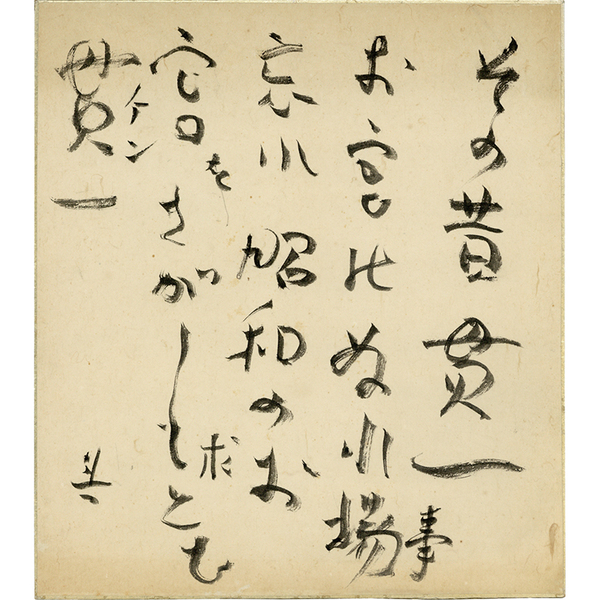 その昔貫一
お宮のぬれ場事
忘れ昭和のお
宮をさがしもとむ
求
貫一
イン